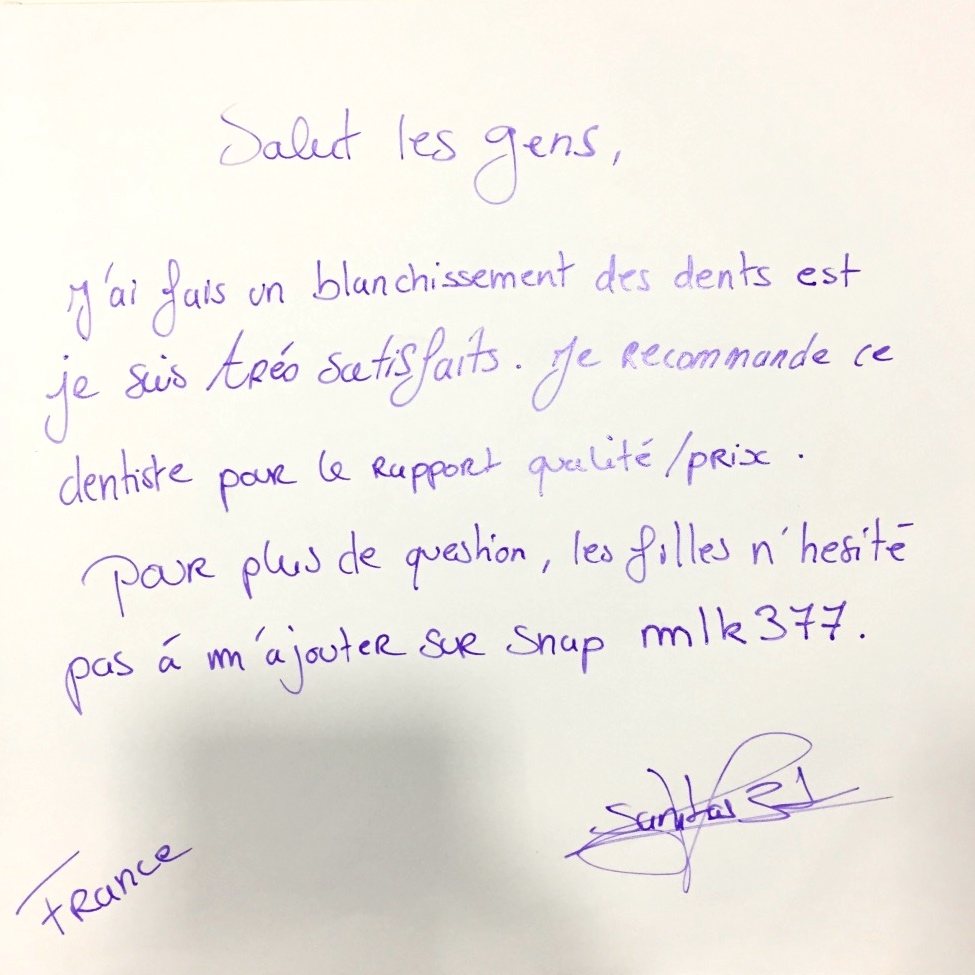 Salut les gens,
J'ai fais un blanchissement des dents est
je suis très satisfaits. Je recommande ce
dentiste pour le rapport qualité/prix.
Pour plus de question, les filles n'hesité
pas á m'ajouter sur snap mlk377.
France